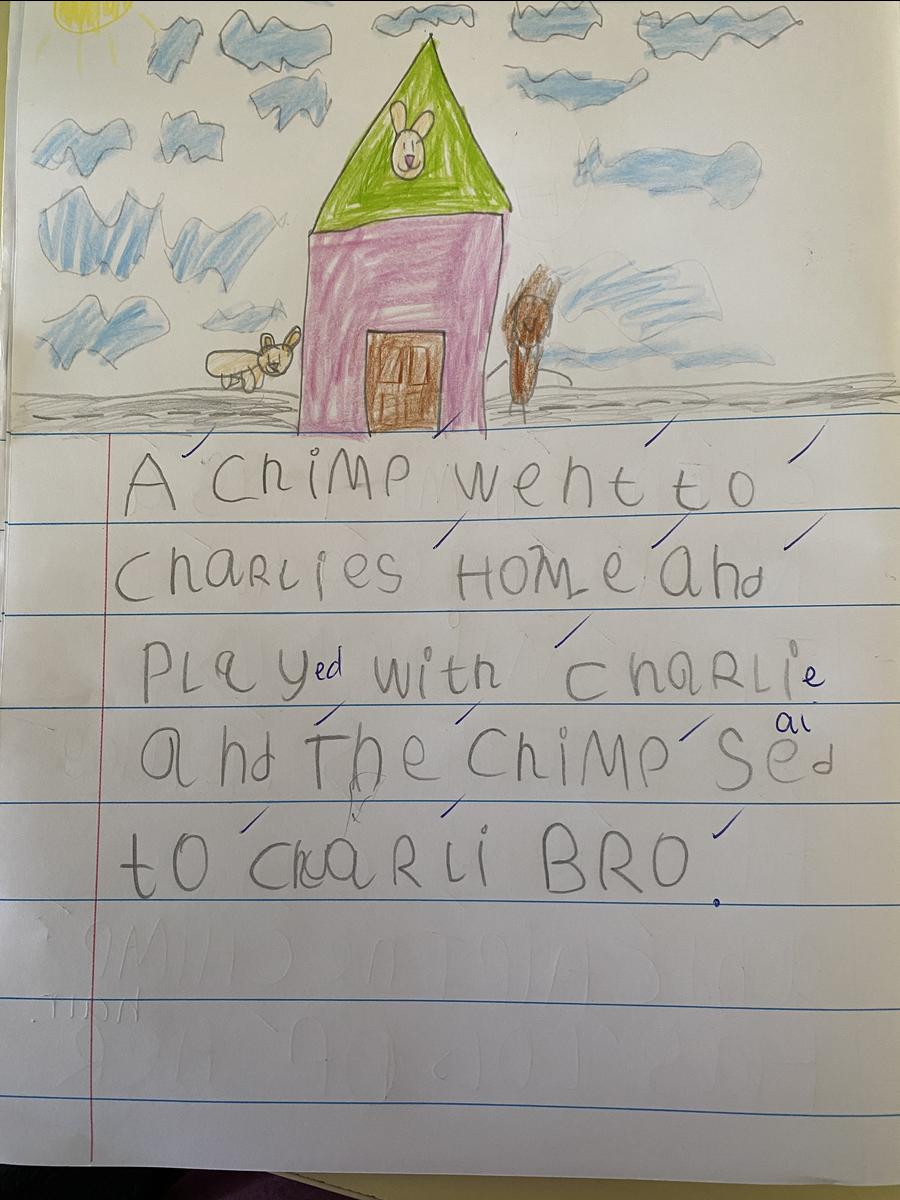 A ChiMP went to
ChaRLies HOMe and
PLayed with ChaRLie
ai
and The ChiMP Sed
to ChaRLi BRO.